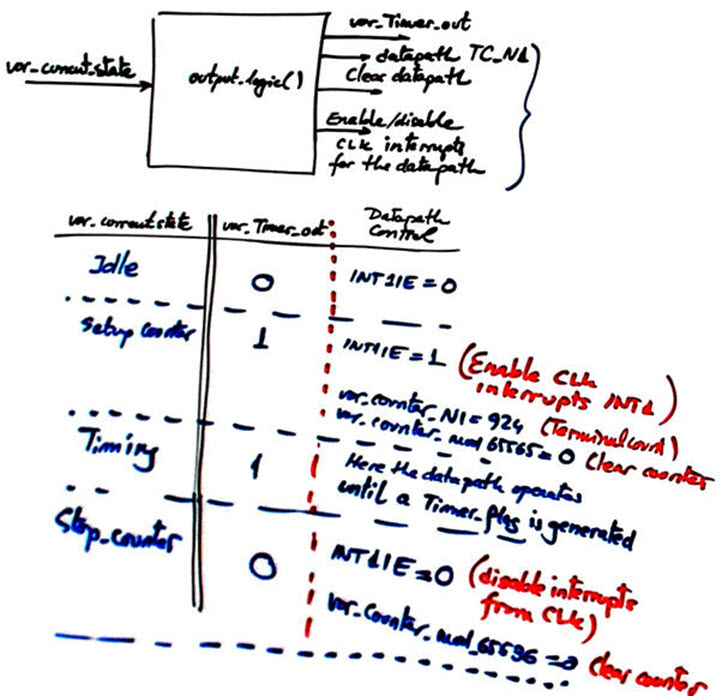 var_Timer_out
var_current_state
output_logic()
datapath TC_N1
Clear datapath
Enable/disable
CLK interrupts
for the datapath
var_current_state var_Timer_out Datapath
Control
Idle 0 INT1IE = 0
Setup counter 1 INT1IE = 1 (Enable CLK
interrupts INT1)
var_counter_N1 = 924 (Terminal count)
var_counter_mod_65565 = 0 Clear counter
Timing 1 Here the datapath operates
until a Timer_flag is generated
Stop_counter 0 INT1IE = 0 (disable interrupts
from CLK)
var_counter_mod_65536 = 0 Clear counter